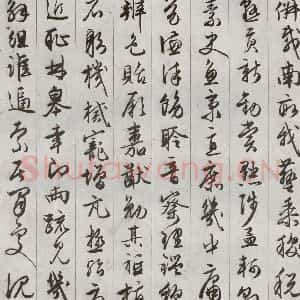 俶載南畝我藝黍稷稅
熟貢新勸賞黜陟孟軻敦
素史魚秉直庶幾中庸
勞謙謹敕聆音察理鑑
辨色貽厥嘉猷勉其祗植
省躬譏誡寵增抗極殆
近恥林皋幸即兩疏見機
解組誰逼索居閒處沉
Shufawang.CN